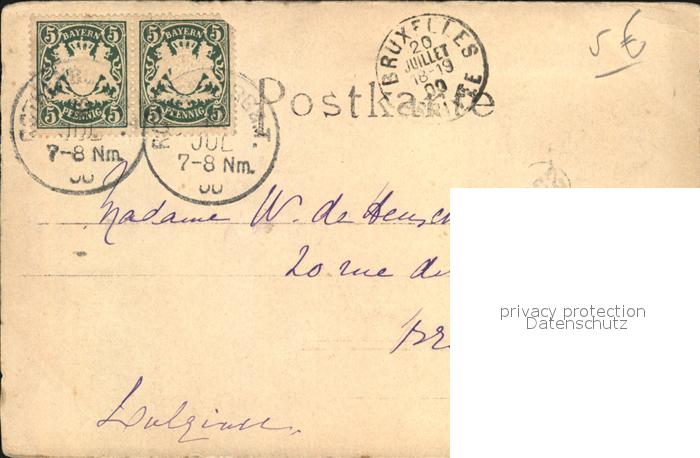 BAYERN BAYERN
5 5 5 5
5 5 5 5
PFENNIG PFENNIG
JUL
7-8 Nm.
00
JUL
7-8 Nm.
00
BRUXELLES
20
JUILLET
18-19
00
5 €
Postkarte
Madame W. de
20 rue
privacy protection
Datenschutz